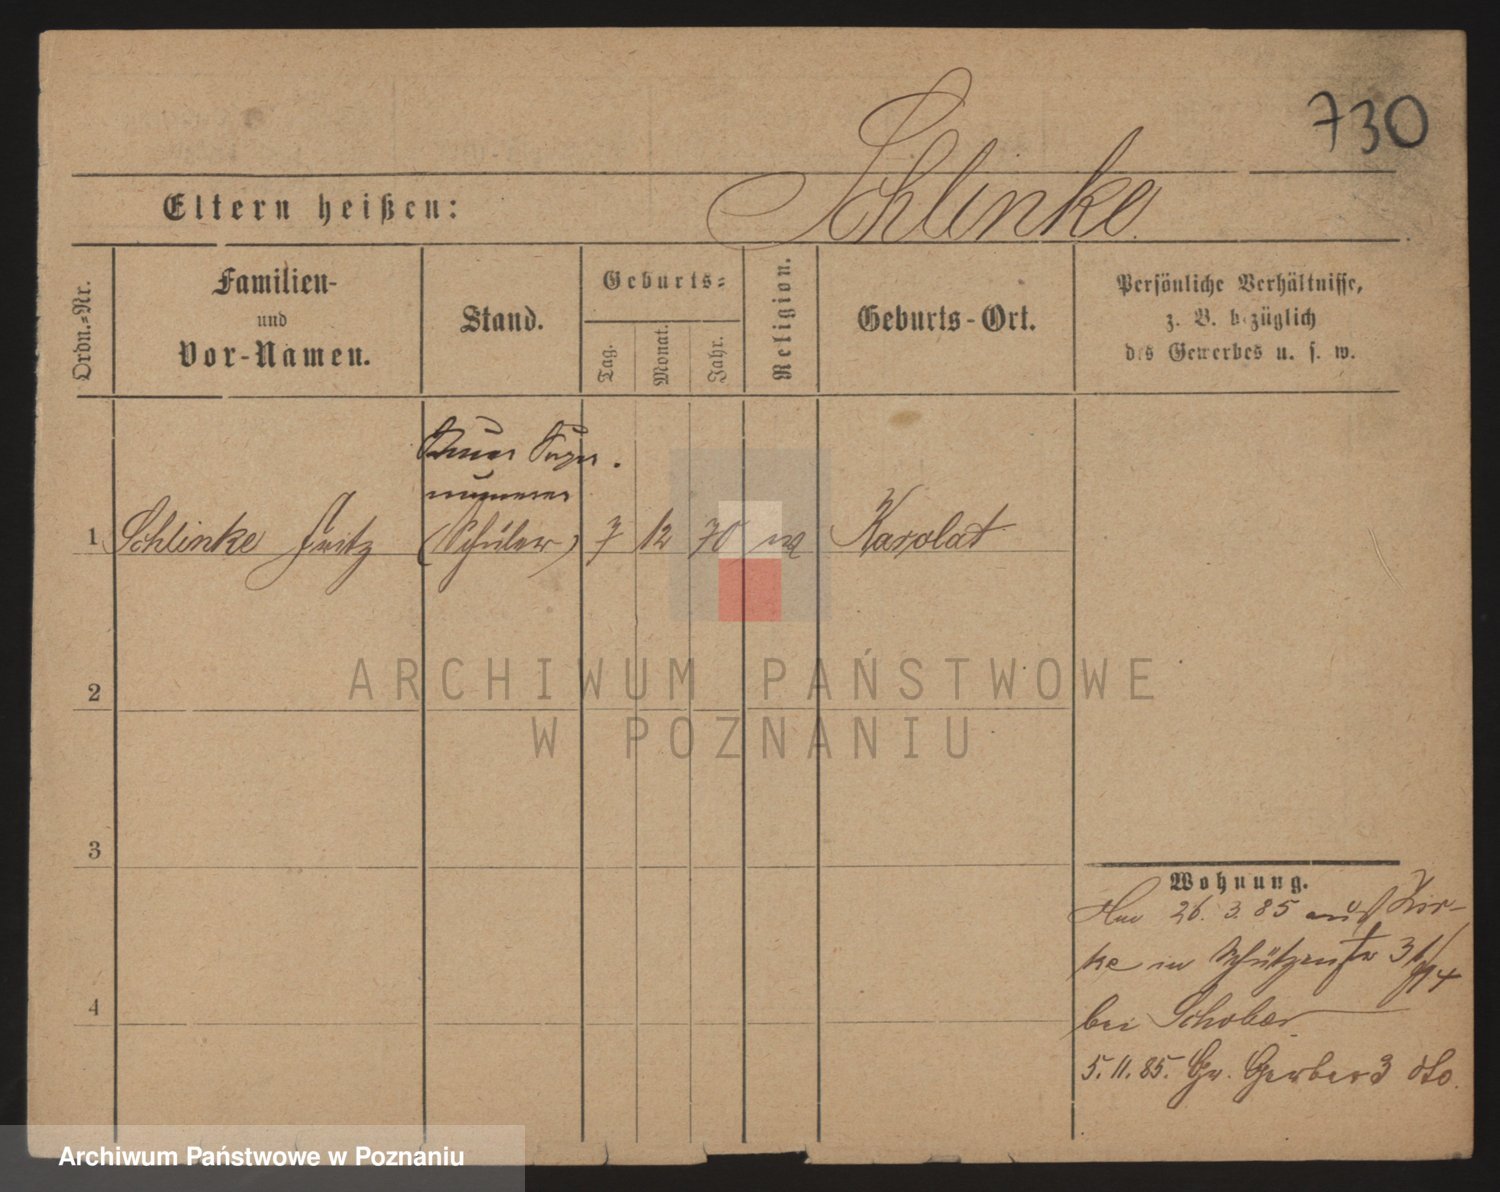 730
Schlinke
Eltern heißen:
Ordn.-Nr.
Familien-
und
Vor-Namen.
Stand.
Geburts-
Tag.
Monat.
Jahr.
Religion.
Geburts-Ort.
Persönliche Verhältnisse,
z. B. bezüglich
des Gewerbes u. s. w.
Steuer Super
numerar
1 Schlinke Fritz (Schüler) 7 12 70 Karolat
2
3
4
Wohnung.
26. 3. 85 aus Zir-
ke in Schützenstr 31
bei Schober
5. 11. 85. Gr. Gerber 3 dto.
ARCHIWUM PAŃSTWOWE
W POZNANIU
Archiwum Państwowe w Poznaniu